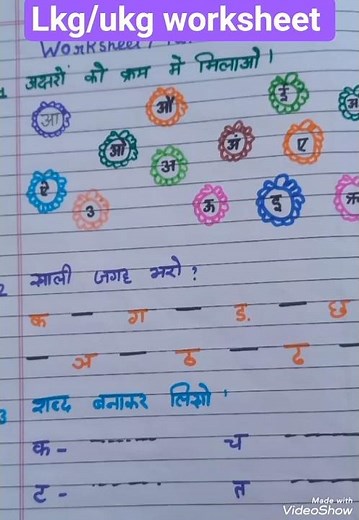 Lkg/ukg worksheet
Worksheet
1 अक्षरों को क्रम में मिलाओ।
आ औ ई
ओ अ अं ए
ऐ उ ऊ इ
2 खाली जगह भरो ?
क — ग — ड. — छ
— ञ — ठ — ढ —
3 शब्द बनाकर लिखो '
क - ------ च ------
ट - ------ त ------
Made with
VideoShow